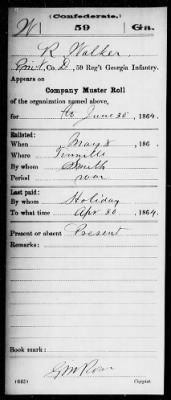 (Confederate.)
W 59 Ga.
R Walker
Priv't, Co. D, 59 Reg't Georgia Infantry.
Appears on
Company Muster Roll
of the organization named above,
for to June 30, 1864.
Enlisted:
When May 8, 186 .
Where Tennille
By whom Smith
Period war
Last paid:
By whom Holiday
To what time Apr 30, 1864.
Present or absent Present
Remarks:
Book mark:
(642)
Copyist.